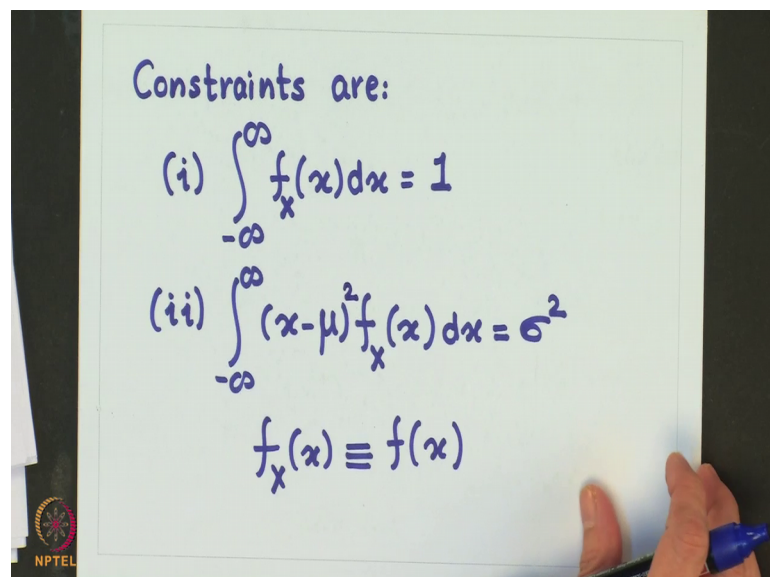 Constraints are:
(i) ∫_{-∞}^{∞} f_X(x) dx = 1
(ii) ∫_{-∞}^{∞} (x-μ)² f_X(x) dx = σ²
f_X(x) ≡ f(x)
NPTEL